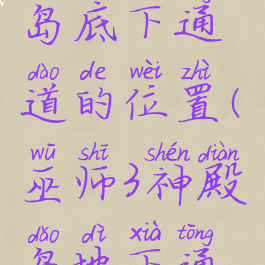 岛底下通
dào de wèi zhì
道的位置(
wū shī shén diàn
巫师3神殿
dǎo dǐ xià tōng